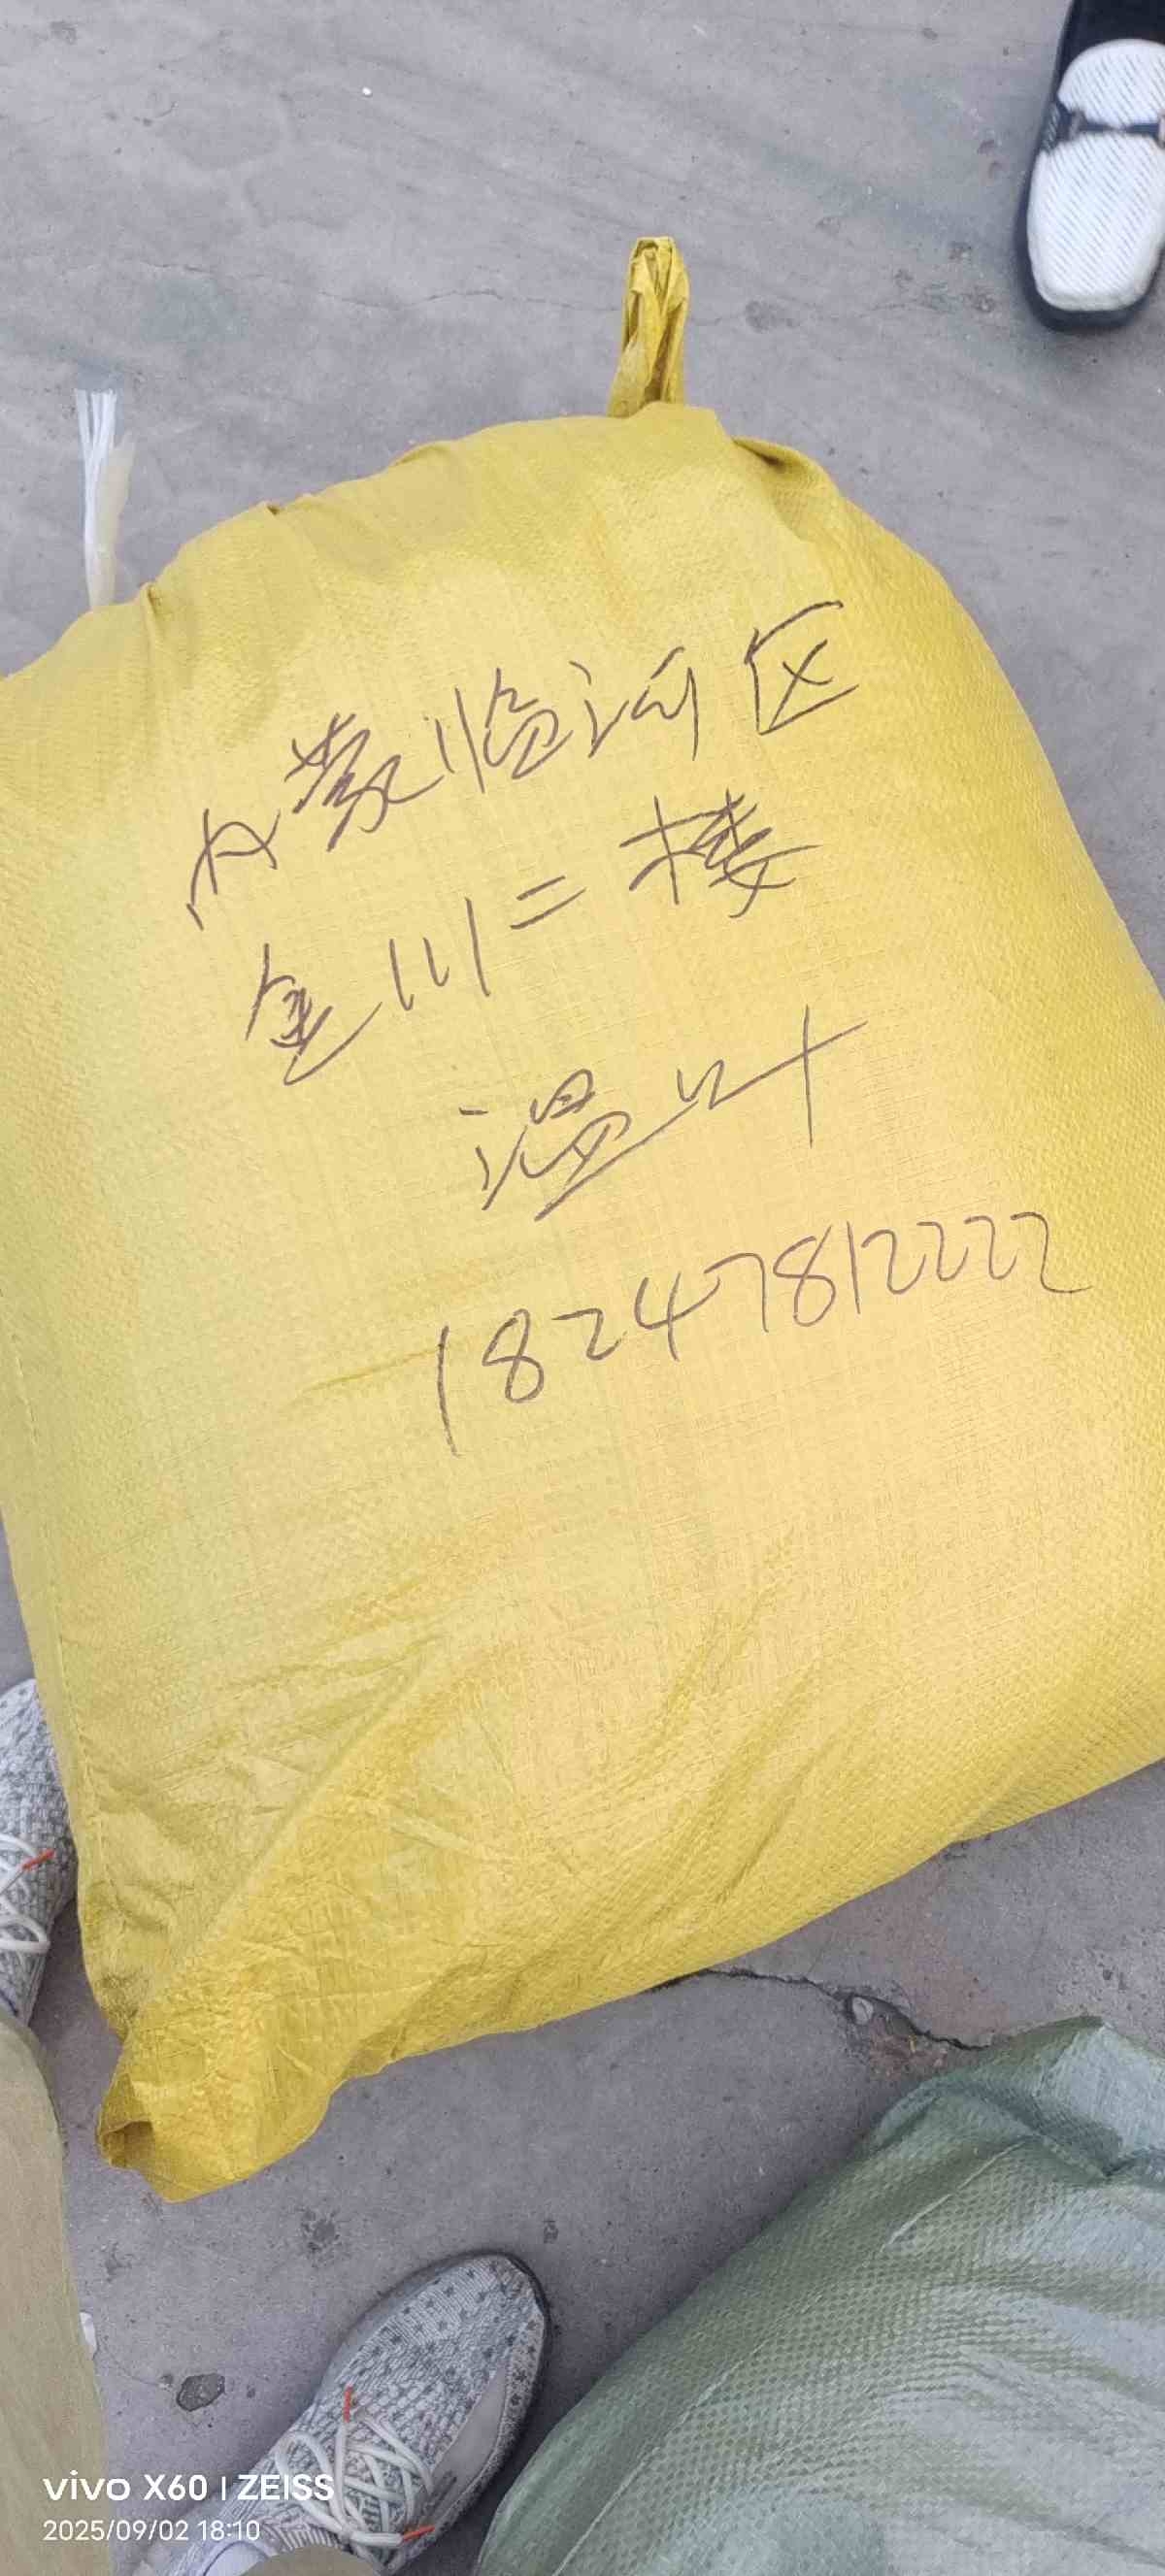 内蒙临河区
金川二楼
漫叶
18247812222
vivo X60 | ZEISS
2025/09/02 18:10